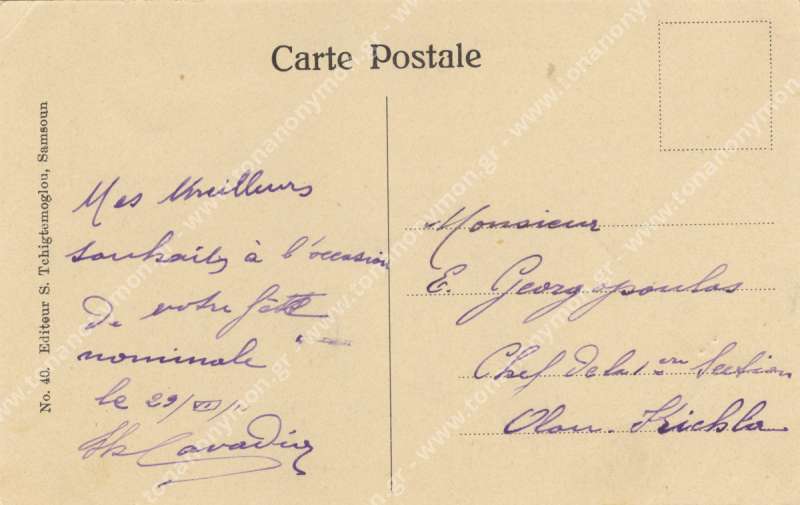 Carte Postale
No. 40. Editeur S. Tchigtemoglou, Samsoun
Mes Meilleurs
souhaits à l'occasion
de votre fête
nominale
le 29/VI/
Monsieur
E. Georgopoulos
Chef de la 1ère Section
www.tonanonymon.gr